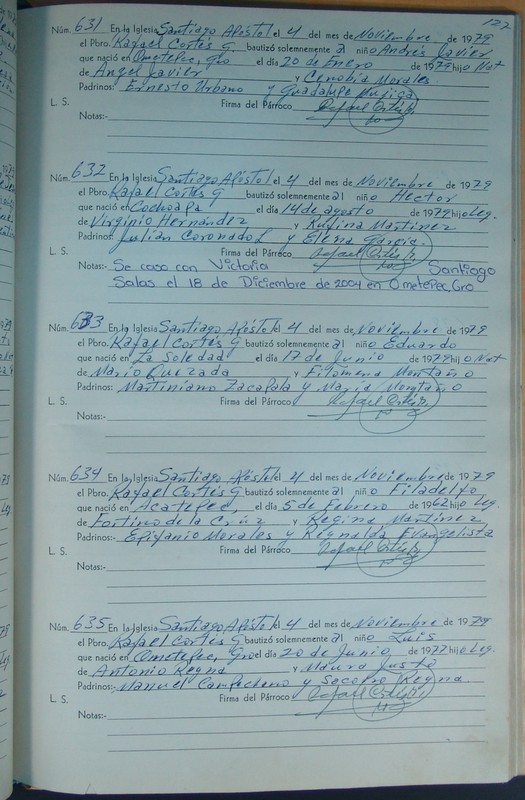 127
Núm. 631 En la Iglesia Santiago Apóstol el 4 del mes de Noviembre de 1979
el Pbro. Rafael Cortés G bautizó solemnemente al niño Andrés Javier
que nació en Ometepec, Gro el día 20 de Enero de 1979 hijo Nat
de Angel Javier y Cenobia Morales
Padrinos: Ernesto Urbano y Guadalupe Mujica
L. S. Firma del Párroco Rafael Cortés G.
Notas:-
Núm. 632 En la Iglesia Santiago Apóstol el 4 del mes de Noviembre de 1979
el Pbro. Rafael Cortés G bautizó solemnemente al niño Hector
que nació en Cochoapa el día 14 de agosto de 1979 hijo Leg.
de Virginio Hernández y Rufina Martinez
Padrinos: Julián Coronado L y Elena García
L. S. Firma del Párroco Rafael Cortés G.
Notas:- Se caso con Victoria Santiago
Salas el 18 de Diciembre de 2004 en Ometepec, Gro
Núm. 633 En la Iglesia Santiago Apóstol el 4 del mes de Noviembre de 1979
el Pbro. Rafael Cortés G. bautizó solemnemente al niño Eduardo
que nació en La Soledad el día 17 de Junio de 1979 hijo Nat
de Mario Quezada y Filomena Montaño
Padrinos: Martiniano Zacapala y María Montaño
L. S. Firma del Párroco Rafael Cortés G.
Notas:-
Núm. 634 En la Iglesia Santiago Apóstol el 4 del mes de Noviembre de 1979
el Pbro. Rafael Cortés G bautizó solemnemente al niño Filadelfo
que nació en Acatepec, el día 5 de Febrero de 1962 hijo Leg.
de Fortino de la Crúz y Regina Martínez
Padrinos: Epifanio Morales y Reynalda Evangelista
L. S. Firma del Párroco Rafael Cortés G.
Notas:-
Núm. 635 En la Iglesia Santiago Apóstol el 4 del mes de Noviembre de 1979
el Pbro. Rafael Cortés G bautizó solemnemente al niño Luis
que nació en Ometepec, Gro el día 20 de Junio de 1977 hijo Leg.
de Antonio Reyna y Maura Justo
Padrinos:- Manuel Campechano y Socorro Reyna.
L. S. Firma del Párroco Rafael Cortés G.
Notas:-